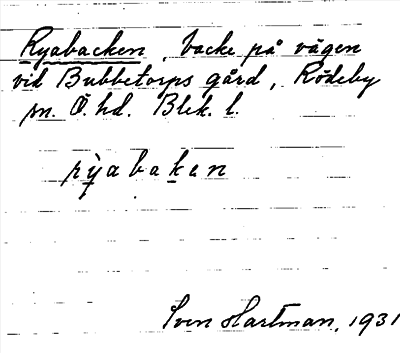 Ryabacken, backe på vägen
vid Bubbetorps gård, Rödeby
sn. Ö. hd. Blek. l.
rỳabaken
Sven Hartman, 1931